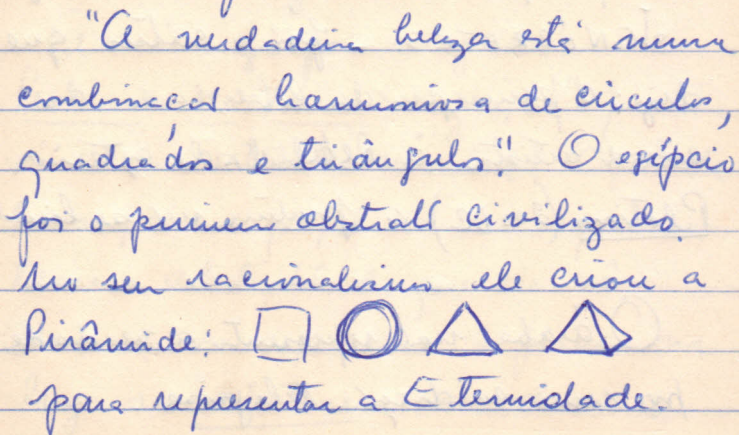 "A verdadeira beleza está numa
combinação harmoniosa de circulos,
quadrados e triângulos". O egípcio
foi o primeiro abstrato civilizado.
No seu racionalismo ele criou a
Pirâmide:
para representar a Eternidade.